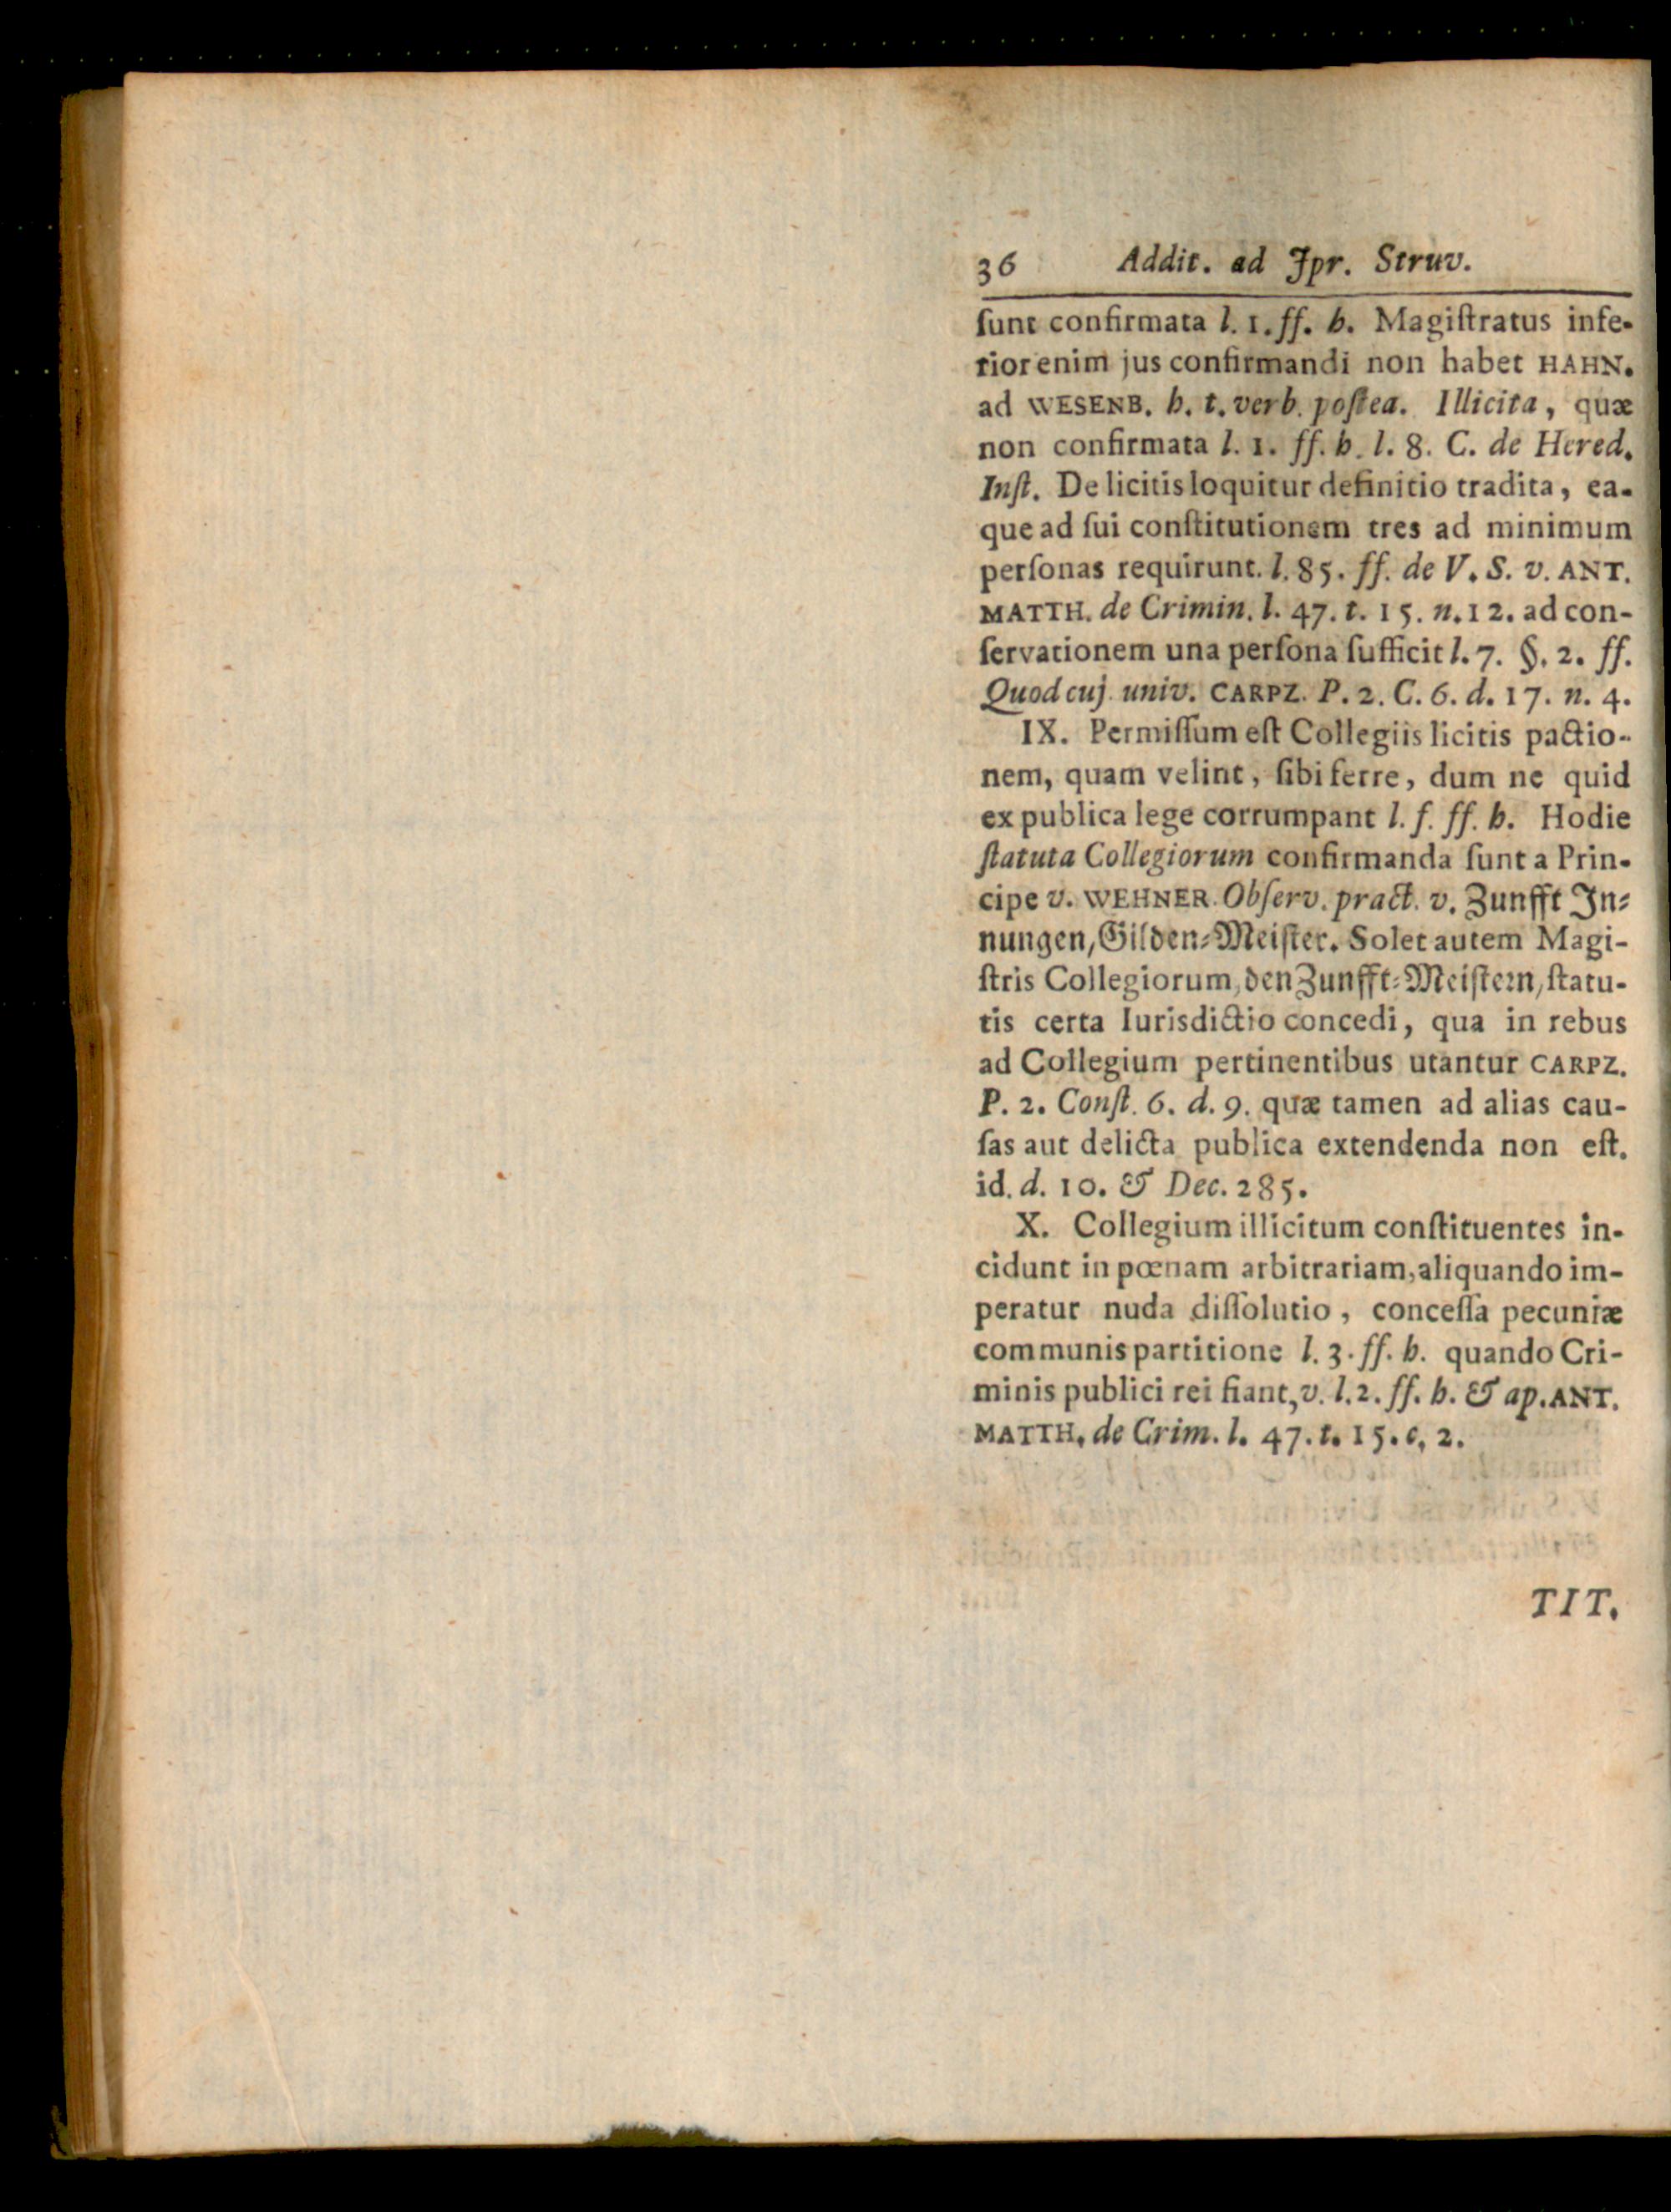 36 Addit. ad Jpr. Struv.
ſunt confirmata l. 1. ff. h. Magiſtratus infe-
rior enim jus confirmandi non habet HAHN.
ad WESENB. h. t. verb. poſtea. Illicita, quæ
non confirmata l. 1. ff. h. l. 8. C. de Hered.
Inſt. De licitis loquitur definitio tradita, ea-
que ad ſui conſtitutionem tres ad minimum
perſonas requirunt. l. 85. ff. de V. S. v. ANT.
MATTH. de Crimin. l. 47. t. 15. n. 12. ad con-
ſervationem una perſona ſufficit l. 7. §. 2. ff.
Quod cuj. univ. CARPZ. P. 2. C. 6. d. 17. n. 4.
IX. Permiſſum eſt Collegiis licitis pactio-
nem, quam velint, ſibi ferre, dum ne quid
ex publica lege corrumpant l. f. ff. h. Hodie
ſtatuta Collegiorum confirmanda ſunt a Prin-
cipe v. WEHNER. Obſerv. pract. v. Zunfft In-
nungen, Gilden-Meiſter. Solet autem Magi-
ſtris Collegiorum, den Zunfft-Meiſtern, ſtatu-
tis certa Iurisdictio concedi, qua in rebus
ad Collegium pertinentibus utantur CARPZ.
P. 2. Conſt. 6. d. 9. quæ tamen ad alias cau-
ſas aut delicta publica extendenda non eſt.
id. d. 10. & Dec. 285.
X. Collegium illicitum conſtituentes in-
cidunt in pœnam arbitrariam, aliquando im-
peratur nuda diſſolutio, conceſſa pecuniæ
communis partitione l. 3. ff. h. quando Cri-
minis publici rei fiant, v. l. 2. ff. h. & ap. ANT.
MATTH. de Crim. l. 47. t. 15. c, 2.
TIT.